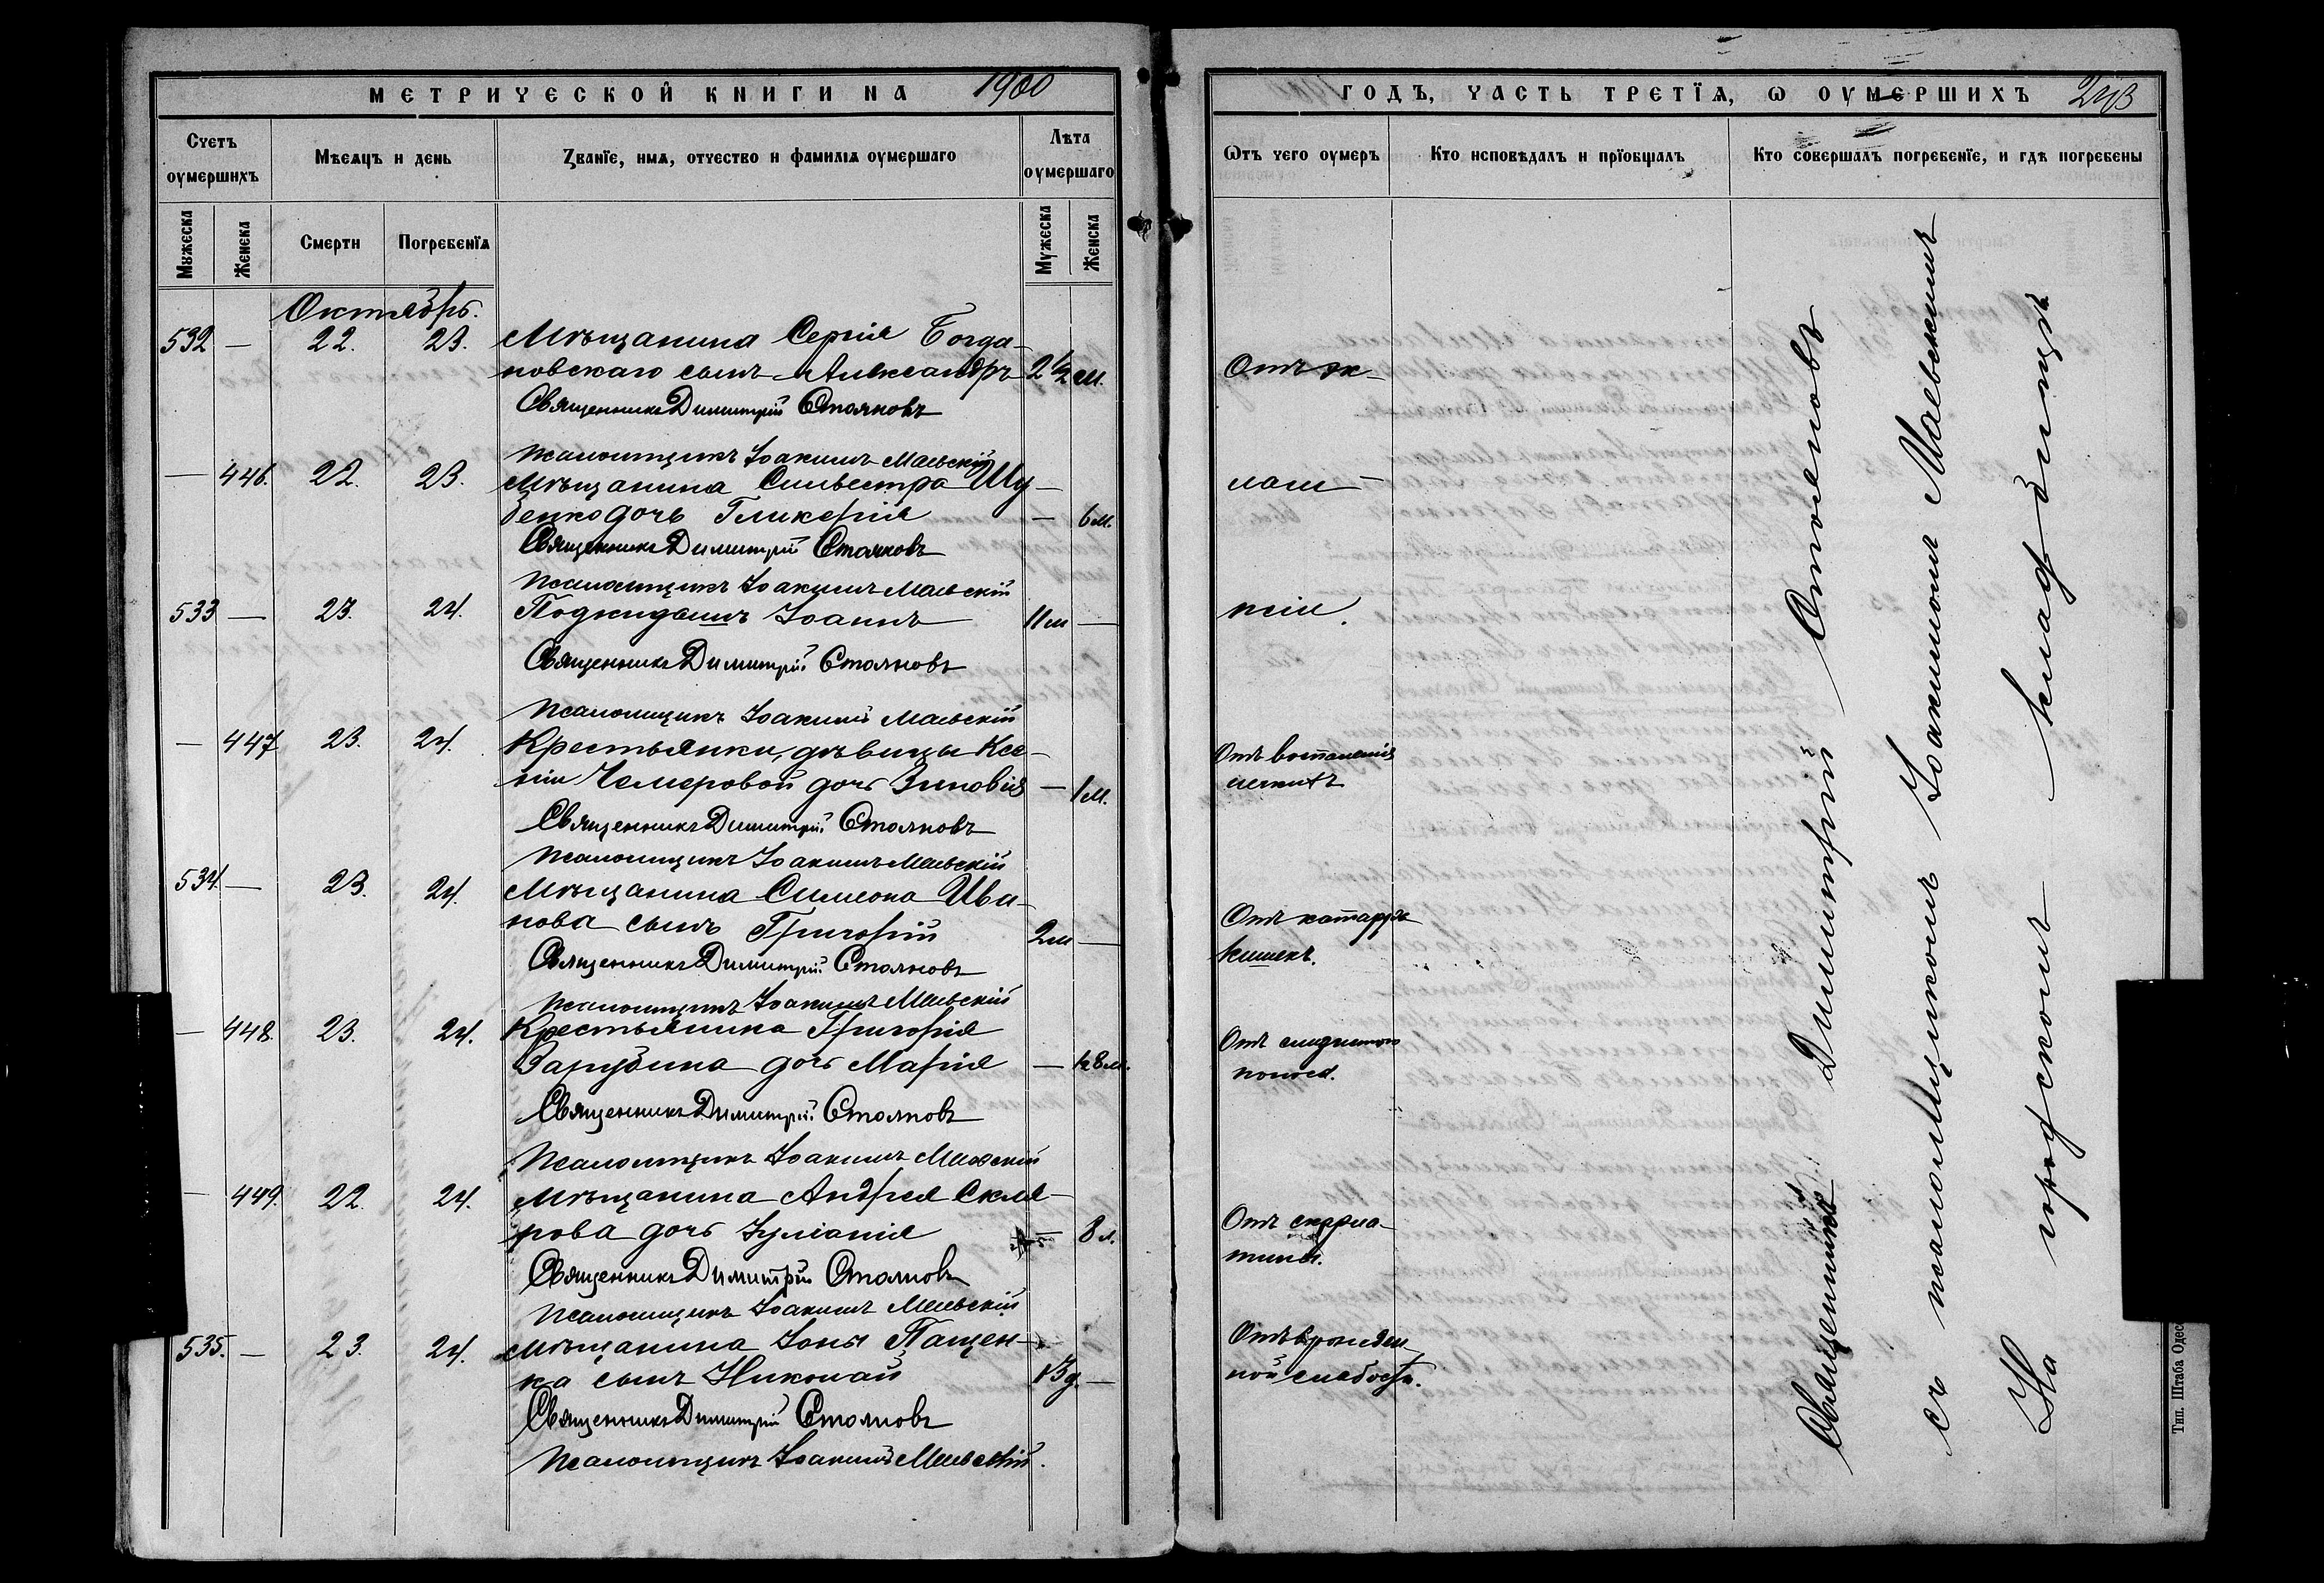 МЕТРИЧЕСКОЙ КНИГИ НА 1900
Счетъ оумершихъ
Мѣсяцъ и день
Званїе, имя, отчество и фамилїя оумершаго
Лѣта оумершаго
Мужеска
Женска
Смерти
Погребенїя
Мужеска
Женска
Октябрь.
532 — 22. 23. Мѣщанина Сергія Богда-
новскаго сынъ Александръ 2½ м.
Священникъ Димитрій Стояновъ
Псаломщикъ Іоакимъ Маевскій
— 446. 22. 23. Мѣщанина Сильвестра Шу-
бенко дочь Гликерія — 6 м.
Священникъ Димитрій Стояновъ
Псаломщикъ Іоакимъ Маевскій
533 — 23. 24. Подкидышъ Іоаннъ 11 м —
Священникъ Димитрій Стояновъ
Псаломщикъ Іоакимъ Маевскій
— 447 23. 24. Крестьянки, дѣвицы Ксе-
ніи Чемеровой дочь Зиновія — 1 м.
Священникъ Димитрій Стояновъ
Псаломщикъ Іоакимъ Маевскій
534. — 23. 24. Мѣщанина Симеона Ива-
нова сынъ Григорій 2 м —
Священникъ Димитрій Стояновъ
Псаломщикъ Іоакимъ Маевскій
— 448. 23. 24. Крестьянина Григорія
Зарубина дочь Марія — 8 м.
Священникъ Димитрій Стояновъ
Псаломщикъ Іоакимъ Маевскій
— 449. 22. 24. Мѣщанина Андрея Скля-
рова дочь Іуліанія — 8 л.
Священникъ Димитрій Стояновъ
Псаломщикъ Іоакимъ Маевскій
535. — 23. 24. Мѣщанина Іоны Пащен-
ка сынъ Николай 13 д. —
Священникъ Димитрій Стояновъ
Псаломщикъ Іоакимъ Маевскій.
ГОДЪ, ЧАСТЬ ТРЕТЇЯ, Ѡ ОУМЕРШИХЪ
Ѿтъ чего оумеръ
Кто исповѣдалъ и прїобщалъ
Кто совершалъ погребенїе, и гдѣ погребены
Отъ эк-
лам-
псіи.
Отъ воспаленія
легкихъ
Отъ катарра
кишекъ.
Отъ слизистаго
поноса.
Отъ скарла-
тины.
Отъ врожден-
ной слабости.
Священникъ Димитрій Стояновъ
съ псаломщикомъ Іоакимомъ Маевскимъ
На городскомъ кладбищѣ
Тип. Штаба Одес